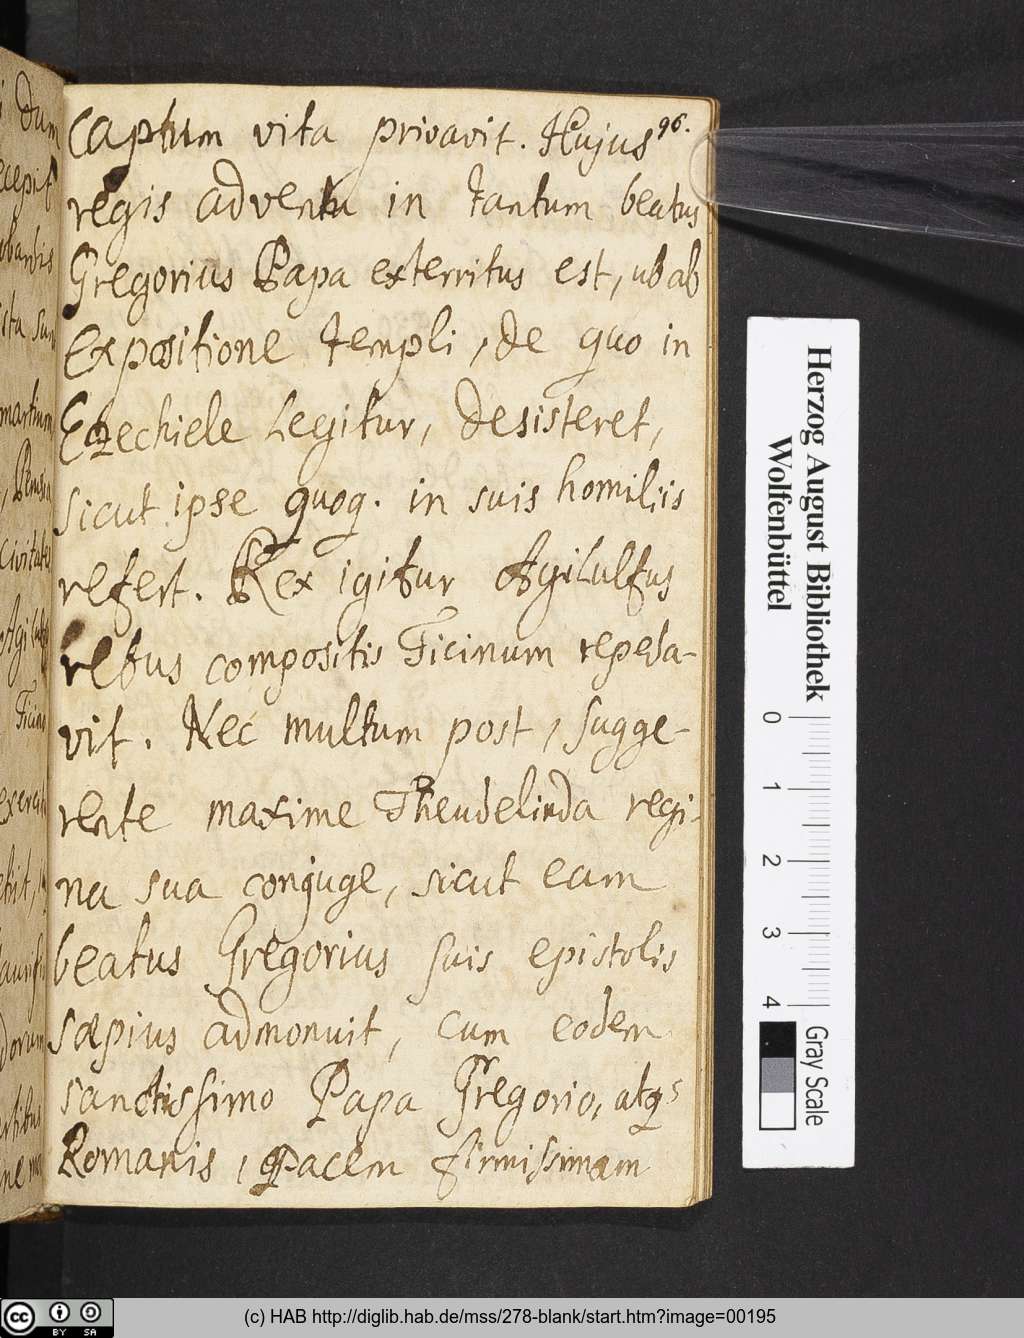 96.
captum vita privavit. Hujus
regis adventu in tantum beatus
Gregorius Papa exterritus est, ub ab
Expositione templi, de quo in
Ezechiele Legitur, desisteret,
sicut ipse quoq. in suis homiliis
refert. Rex igitur Agilulfus
rebus compositis Ticinum repeda-
vit. Nec multum post, sugge-
rente maxime Theudelinda regi-
na sua conjuge, sicut eam
beatus Gregorius suis epistolis
sæpius admonuit, cum eodem
sanctissimo Papa Gregorio, atqs
Romanis, pacem firmissimam
Herzog August Bibliothek
Wolfenbüttel
0 1 2 3 4
Gray Scale
cc BY SA
(c) HAB http://diglib.hab.de/mss/278-blank/start.htm?image=00195